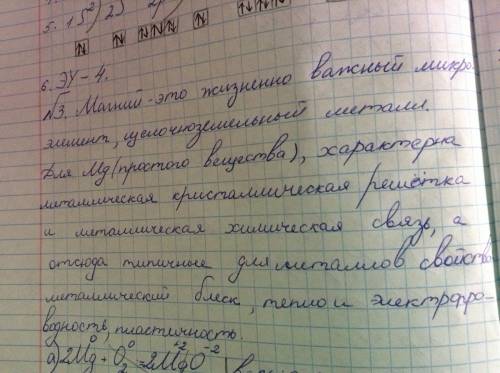 5. 1s²) 2s
6. ЭУ – 4.
№3. Магний - это жизненно важный микро
элемент, щелочноземельный металл.
Для Mg (простого вещества), характерна
металлическая кристаллическая решётка
и металлическая химическая связь, а
отсюда типичные для металлов свойства
металлический блеск, тепло и электропро-
водность, пластичность.
а) 2Mg⁰ + O₂⁰ = 2Mg⁺²O⁻²